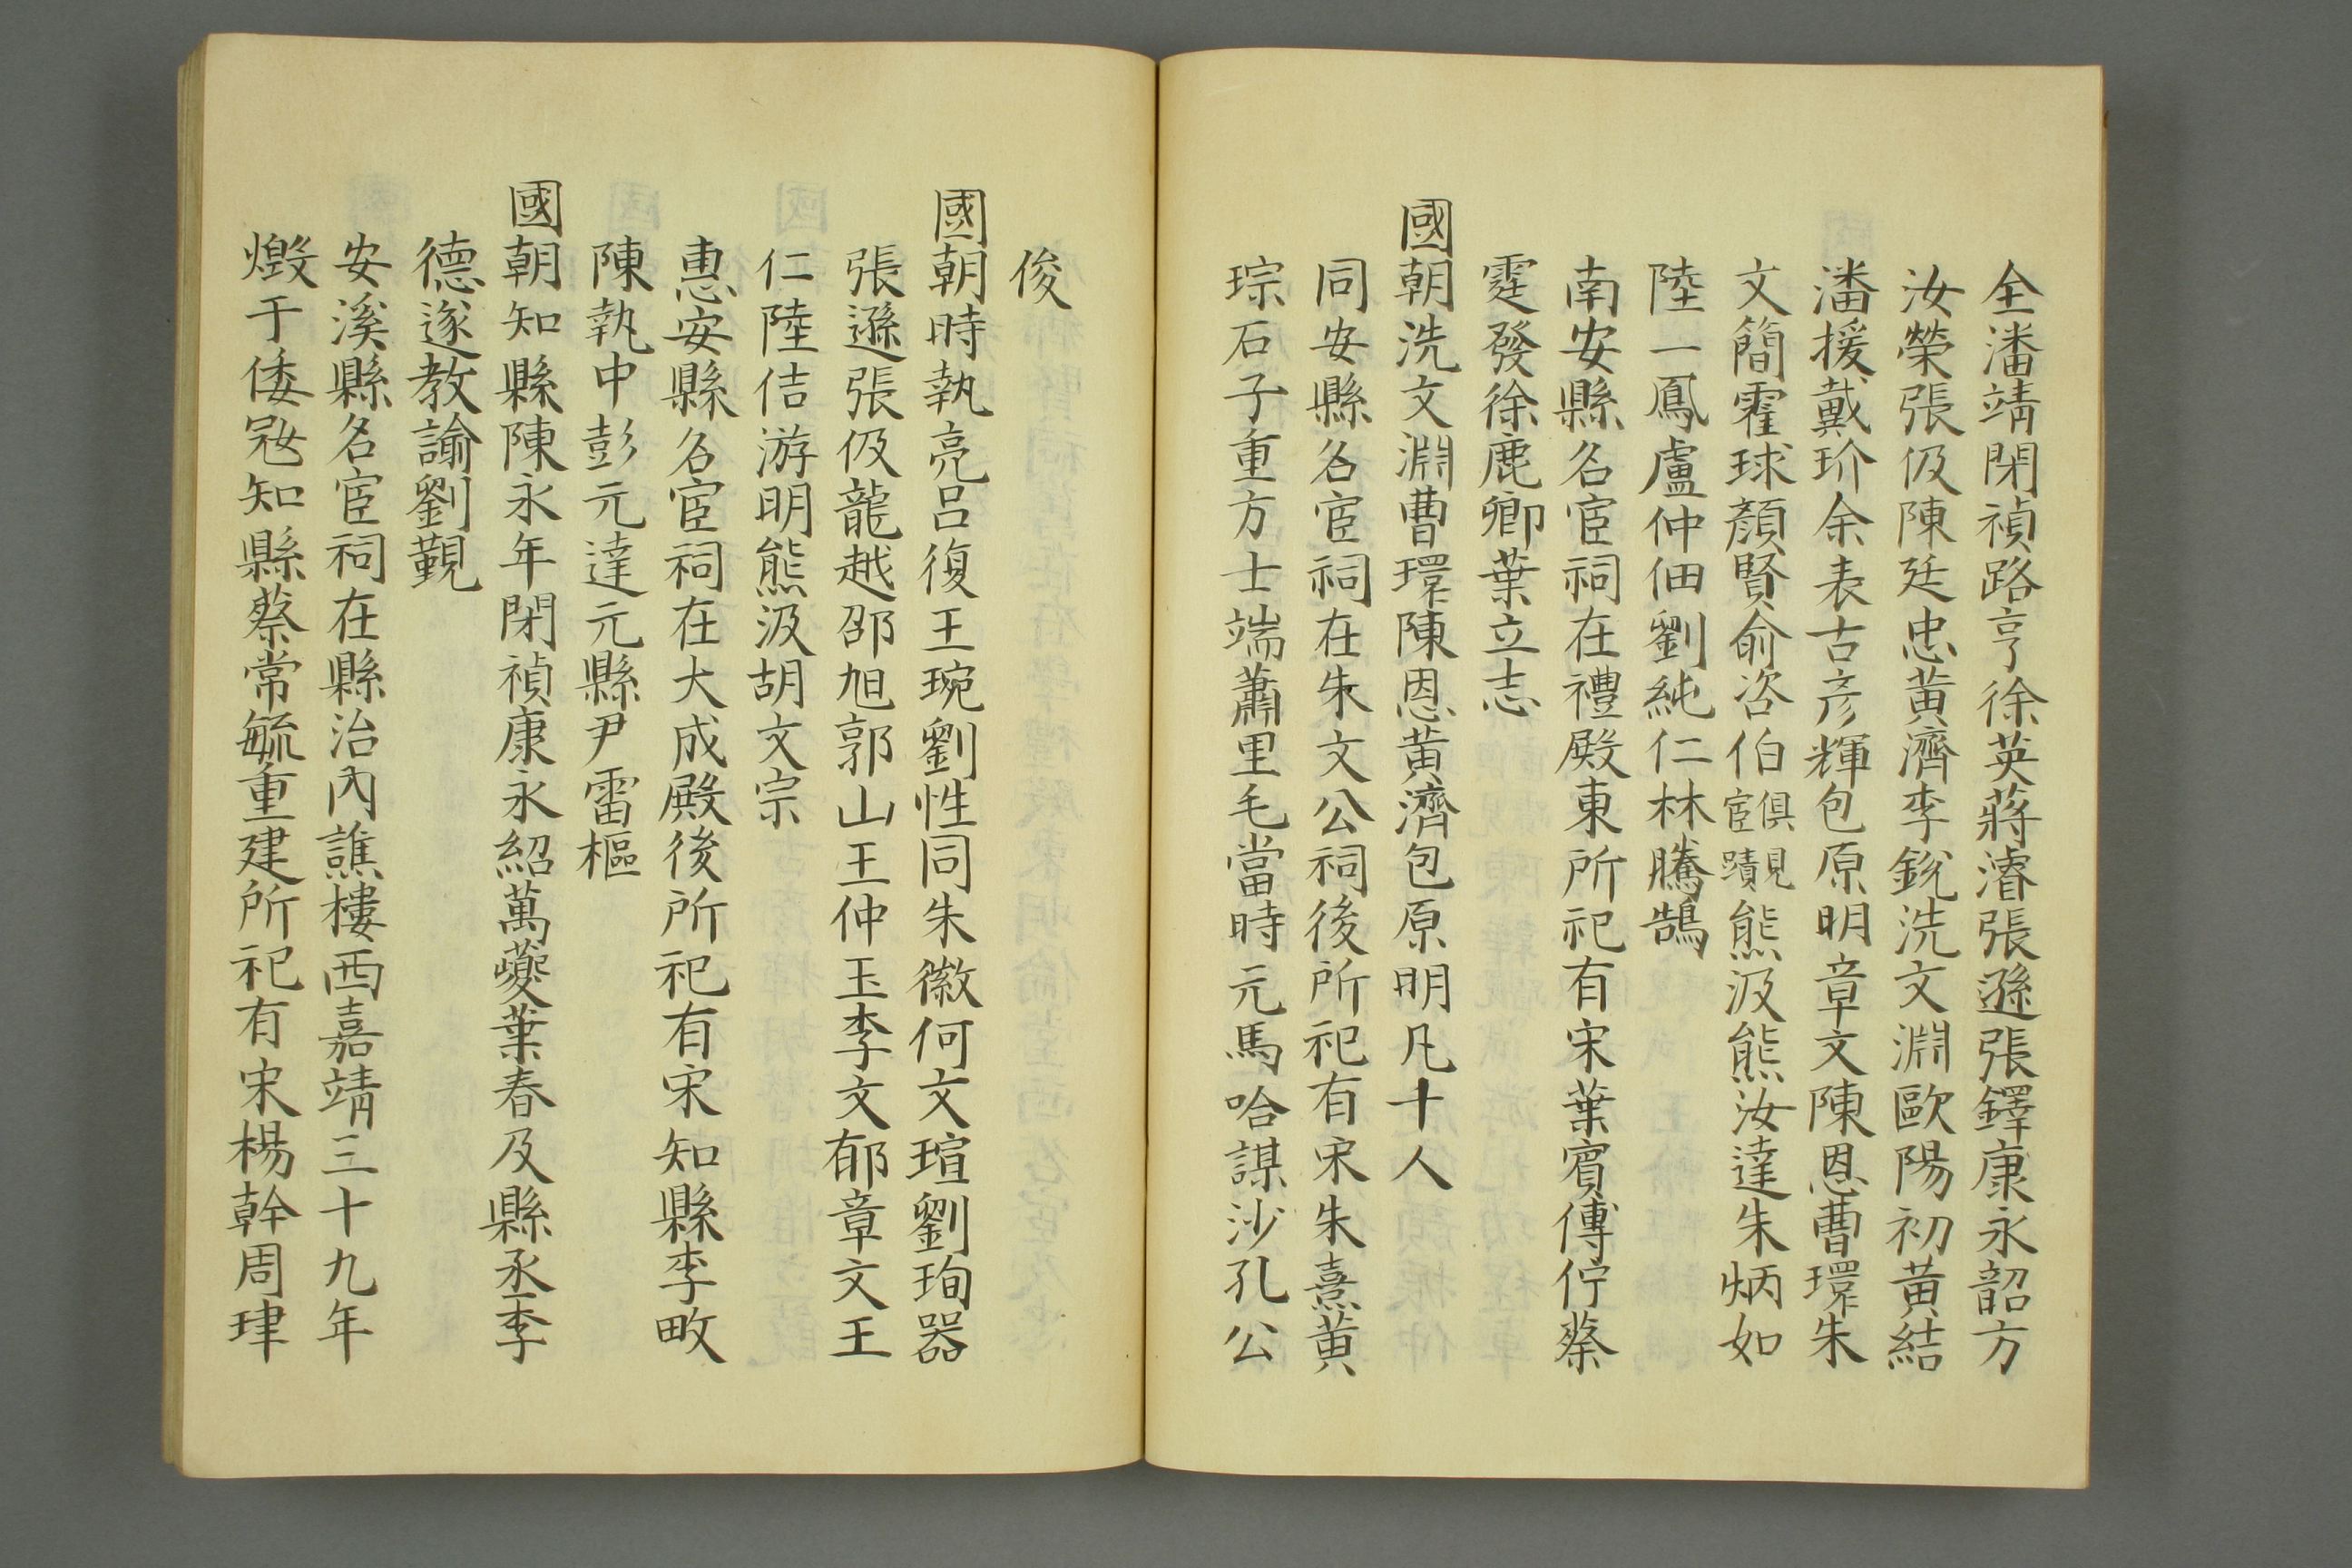 全潘靖閑禎路亨徐英蔣濬張遜張鐸康永韶方
汝榮張伋陳廷忠黃濟李銳洗文淵歐陽初黃結
潘援戴玠余表古彥輝包原明章文陳恩曹環朱
文簡霍球顏賢俞咨伯俱見宦蹟熊汲熊汝達朱炳如
陸一鳳盧仲佃劉純仁林騰鵠
南安縣名宦祠在禮殿東所祀有宋葉賓傅佇蔡
霆發徐鹿卿葉立志
國朝洗文淵曹環陳恩黃濟包原明凡十人
同安縣名宦祠在朱文公祠後所祀有宋朱熹黃
琮石子重方士端蕭里毛當時元馬哈謀沙孔公
俊
國朝時執亮呂復王琬劉性同朱徽何文瑄劉珣器
張遜張伋龍越邵旭郭山王仲玉李文郁章文王
仁陸佶游明熊汲胡文宗
惠安縣名宦祠在大成殿後所祀有宋知縣李畋
陳執中彭元達元縣尹雷樞
國朝知縣陳永年閑禎康永紹萬夔葉春及縣丞李
德遂教諭劉覲
安溪縣名宦祠在縣治內譙樓西嘉靖三十九年
燬于倭寇知縣蔡常毓重建所祀有宋楊幹周珒